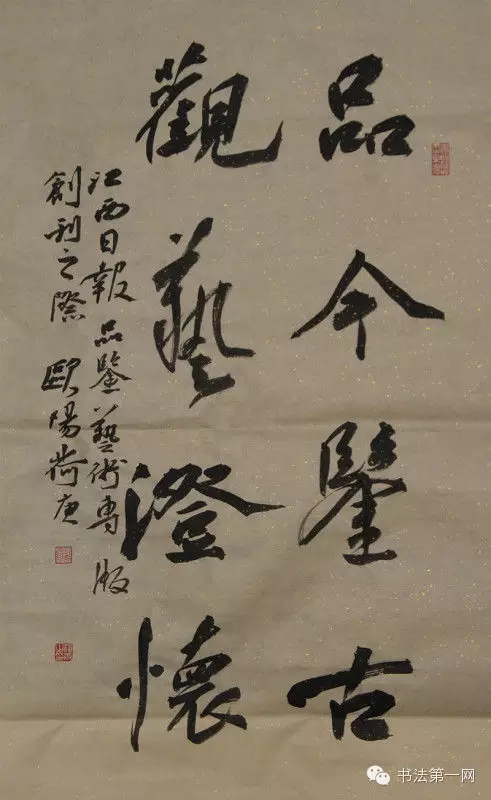 品今鑒古
觀藝澄懷
江西日報品鑒藝術專版
創刊之際 歐陽荷庚
书法第一网